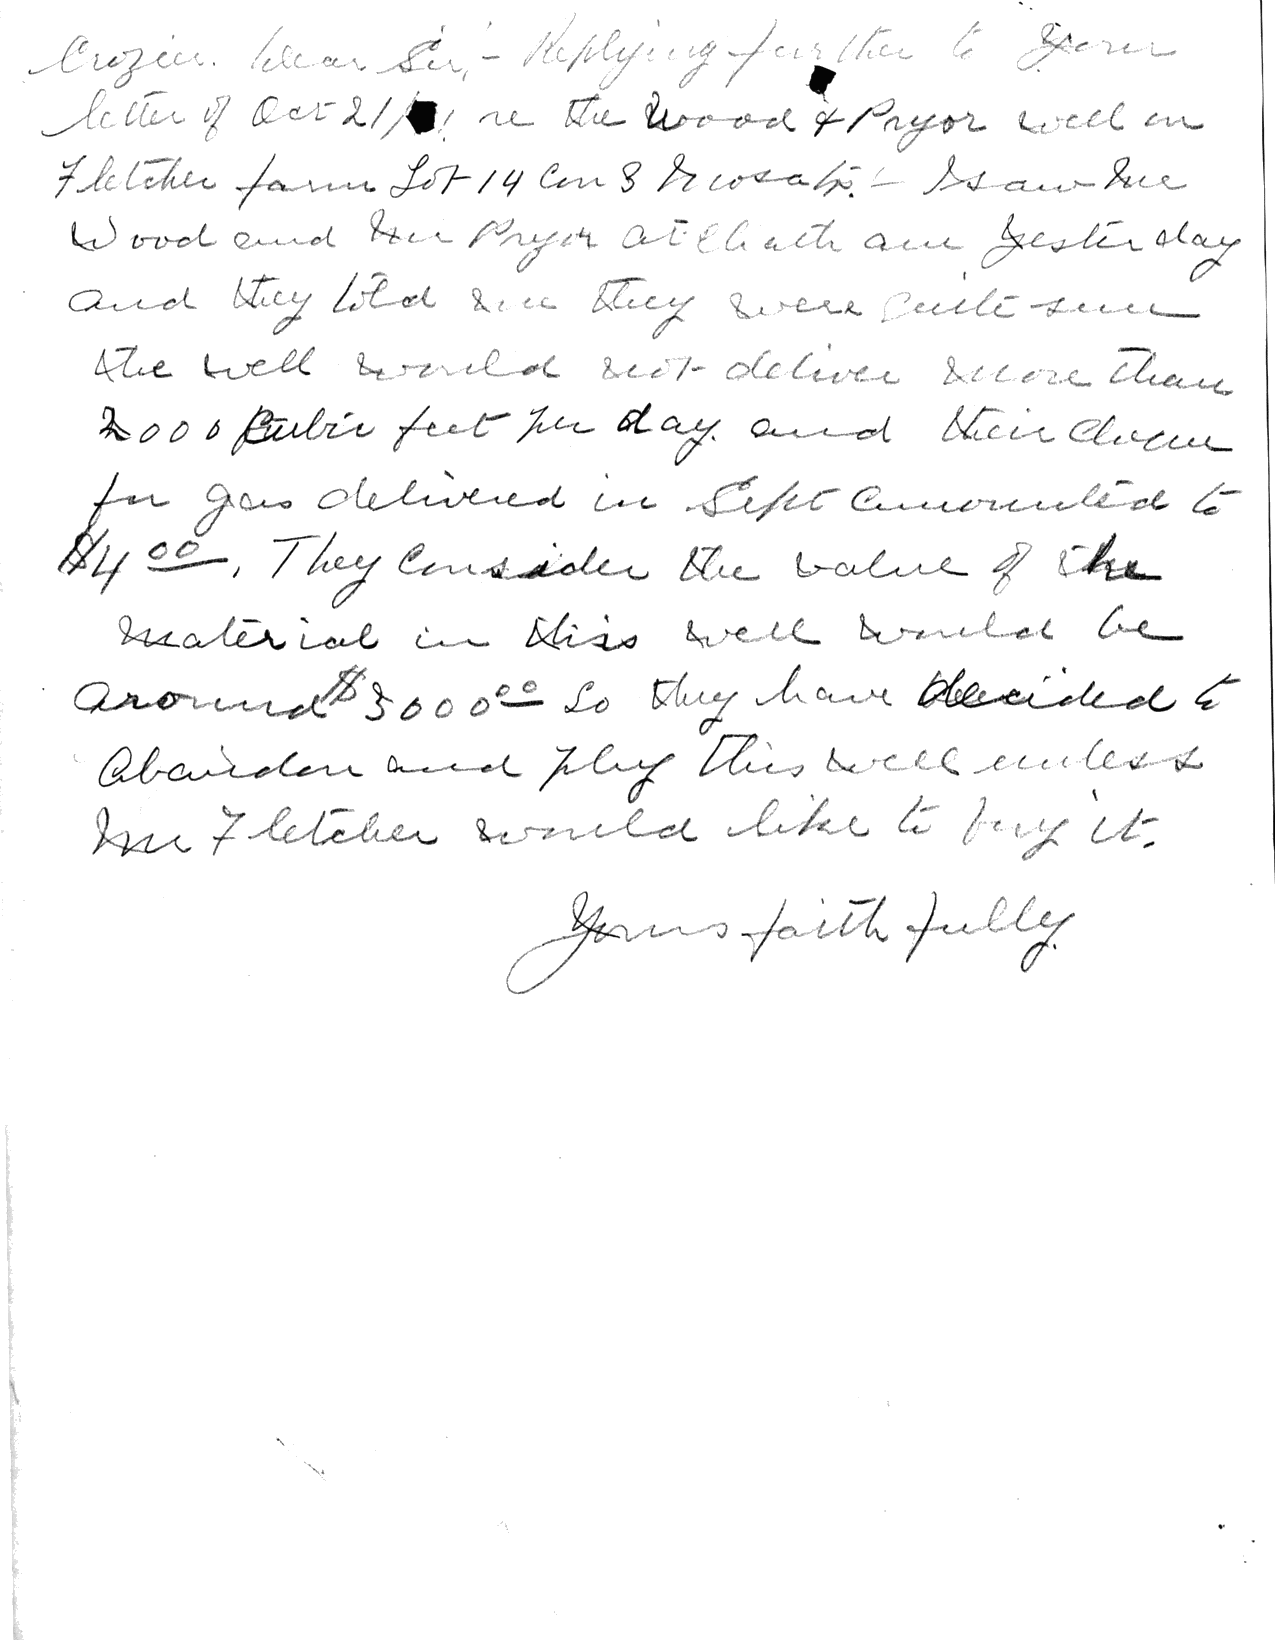 Crozier. Dear Sir,- Replying further to your
letter of Oct 21/ re the Wood & Pryor well on
Fletcher farm Lot 14 Con 3 Mosa tp.- I saw Mr
Wood and Mr Pryor at Chatham yesterday
and they told me they were quite sure
the well would not deliver more than
2000 Cubic feet per day. and their cheque
for gas delivered in Sept amounted to
$4 00. They consider the value of the
material in this well would be
around $3000 00 So they have decided to
Abandon and plug this well unless
Mr Fletcher would like to buy it.
Yours faithfully.